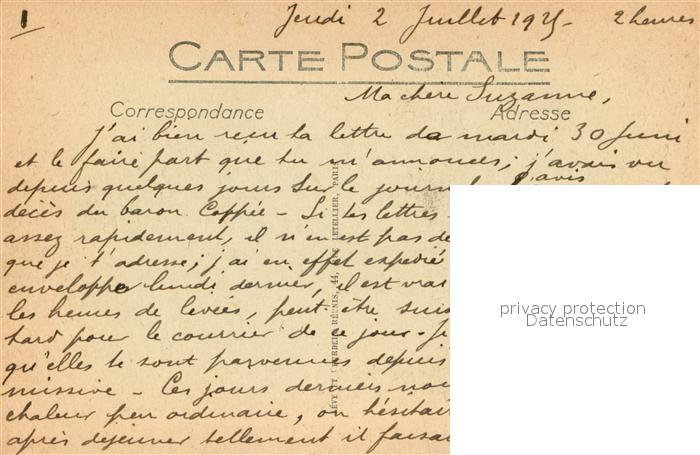 1
Jeudi 2 Juillet 1925 - 2 heures
CARTE POSTALE
Ma chère Suzanne,
Correspondance
Adresse
J'ai bien reçu ta lettre de mardi 30 Juin
et le faire part que tu m'annonces; j'avais vu
depuis quelques jours sur le journal l'avis
décès du baron Coppée - Si tes lettres
assez rapidement, il n'en est pas de
que je t'adresse; j'ai en effet expédié
enveloppe lundi dernier, il est vrai
les heures de levées, peut être suis
tard pour le courrier de ce jour - Je
qu'elles te sont parvenues depuis
missive - Ces jours derniers nou
chaleur peu ordinaire, on hésitai
après déjeuner tellement il faisai
LÉVY ET NEURDEIN RÉUNIS, 44, RUE LETELLIER, PARIS
privacy protection
Datenschutz